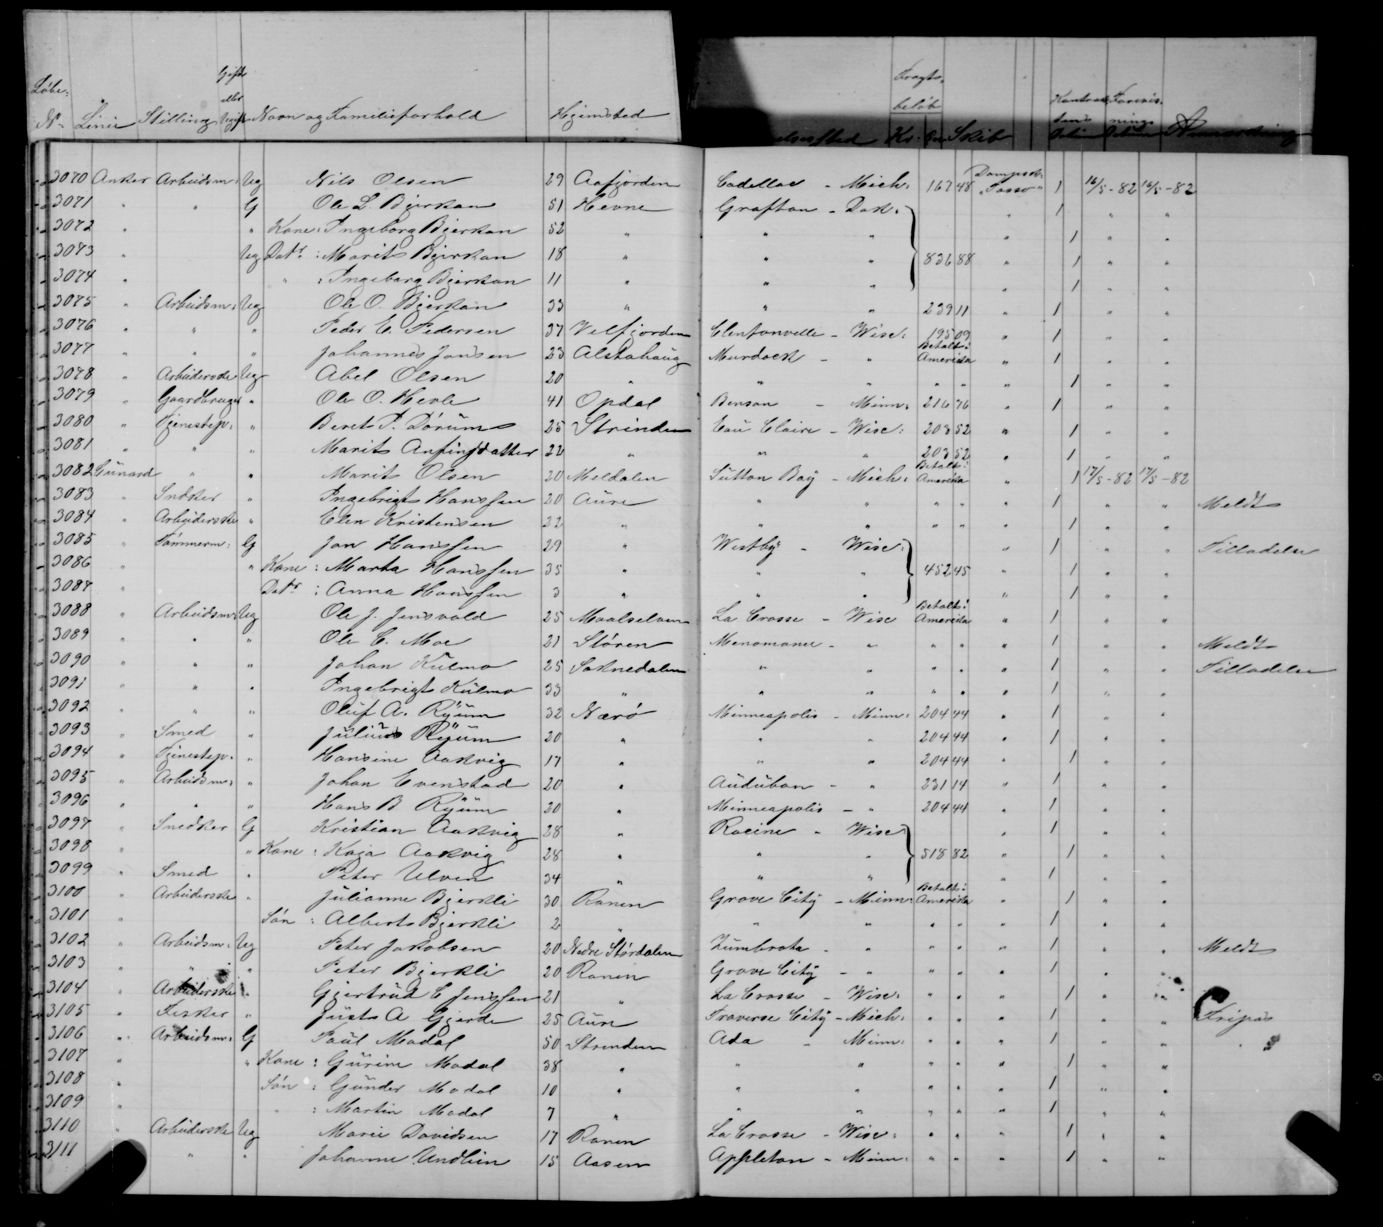 Løbe- Gift eller Ugift Fragt- beløb Kontrak- Forevis-
No Linie Stilling Navn og Familieforhold Hjemsted Kr. Skib
3070 Anker Arbeidsm: Ug Nils Olsen 29 Aafjorden Cadellac - Mich: 167 48 Dampsk: "Tasso" 1 16/5-82 16/5-82
3071 " " G Ole L. Bjerkan 51 Hevne Grafton - Dak: " 1 " "
3072 " " Kone: Ingeborg Bjerkan 52 " " " " 1 " "
3073 " Ug Datr: Marit Bjerkan 18 " " " 836 88 " 1 " "
3074 " " : Ingeborg Bjerkan 11 " " " " 1 " "
3075 " Arbeidsm: Ug Ole O. Bjerkan 33 " " " 239 11 " 1 " "
3076 " " " Peder E. Pedersen 37 Velfjorden Clentonvelle - Wisc: 195 09 " 1 " "
3077 " " " Johannes Jansen 23 Alstahaug Murdock - " Betalt i Amerika " 1 " "
3078 " Arbeiderske Ug Abel Olsen 20 " " " " " " 1 " "
3079 " Gaardbruger " Ole O. Hevle 41 Opdal Benson - Minn: 216 76 " 1 " "
3080 " Tjenestep: " Beret P. Dørum 25 Strinden Eau Claire - Wisc: 203 52 " 1 " "
3081 " " " Marit Anfinsdatter 22 " " " 203 52 " 1 " "
3082 Cunard " " Marit Olsen 20 Meldalen Sutton Bay - Mich: Betalt i Amerika " 1 17/5-82 17/5-82
3083 " Snedker " Ingebrigt Hanssen 20 Aure " " " " " 1 " " Meldt
3084 " Arbeiderske " Elen Kristensen 22 " " " " " " 1 " "
3085 " Tømmerm: G Jon Hanssen 29 " Westby - Wisc: " 1 " " Tilladelse
3086 " " Kone: Marta Hanssen 35 " " " 452 45 " 1 " "
3087 " Datr: Anna Hanssen 3 " " " " 1 " "
3088 " Arbeidsm: Ug Ole J. Jensvold 25 Maalselven La Crosse - Wisc Betalt i Amerika " 1 " "
3089 " " " Ole C. Moe 21 Støren Menomonie - " " " " 1 " " Meldt
3090 " " " Johan Kulmo 25 Soknedalen " " " " " 1 " " Tilladelse
3091 " " " Ingebrigt Kulmo 33 " " " " " " 1 " "
3092 " " " Oluf A. Ryum 32 Nærø Minneapolis - Minn: 204 44 " 1 " "
3093 " Smed " Julius Ryum 20 " " " 204 44 " 1 " "
3094 " Tjenestep. " Hansine Aakvig 17 " " " 204 44 " 1 " "
3095 " Arbeidsm: " Johan Evenstad 20 " Audubon - " 231 14 " 1 " "
3096 " " " Hans B Ryum 20 " Minneapolis - " 204 44 " 1 " "
3097 " Snedker G Kristian Aakvig 28 " Racine - Wisc: " 1 " "
3098 " " Kone: Kaja Aakvig 28 " " " 518 82 " 1 " "
3099 " Smed " Peter Ulven 34 " " " " 1 " "
3100 " Arbeiderske " Julianne Bjerkli 30 Ranen Grove City - Minn: Betalt i Amerika " 1 " "
3101 " Søn: Albert Bjerkli 2 " " " " " " 1 " "
3102 " Arbeidsm: Ug Peter Jakobsen 20 Nedre Størdalen Zumbrota - " " " " 1 " " Meldt
3103 " " " Peter Bjerkli 20 Ranen Grove City - " " " " 1 " "
3104 " Arbeiderske " Gjertrud E Jenssen 21 " La Crosse - Wisc: " " " 1 " "
3105 " Fisker " Just A Gjerde 25 Aure Traverse City - Mich: " " " 1 " " Fripas
3106 " Arbeidsm: G Paul Modal 50 Strinden Ada - Minn: " " " 1 " "
3107 " " Kone: Gurine Modal 38 " " " " " " 1 " "
3108 " Søn: Gunder Modal 10 " " " " " " 1 " "
3109 " " : Martin Modal 7 " " " " " " 1 " "
3110 " Arbeiderske Ug Marie Davidsen 17 Ranen La Crosse - Wisc: " " " 1 " "
3111 " " " Johanne Undlien 15 Aasen Appleton - Minn: " " " 1 " "